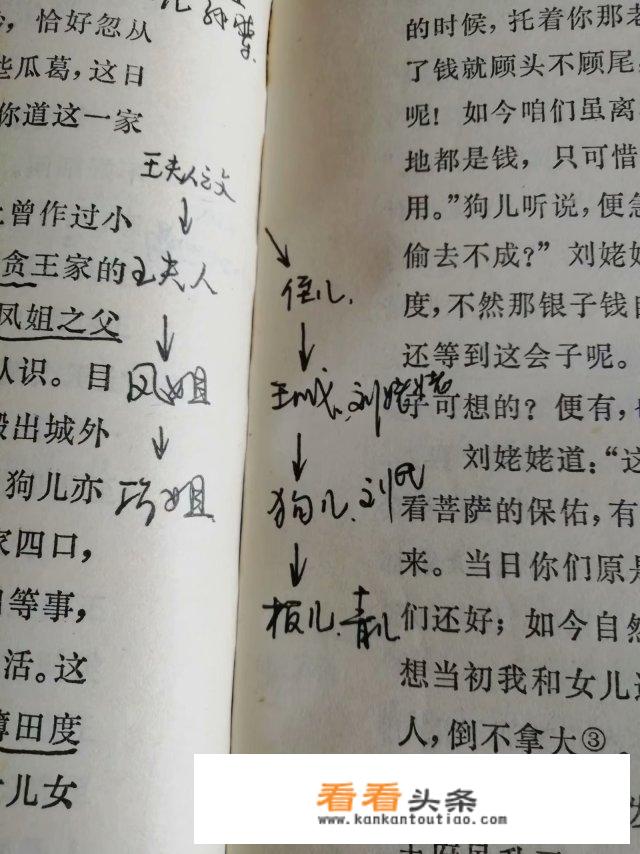 恰好忽从
些瓜葛，这日
你道这一家
曾作过小
贪王家的
凤姐之父
认识。目
出城外
狗儿亦
家四口，
等事，
活。这
薄田度
儿女
王夫人之父
↓
王夫人
↓
凤姐
↓
巧姐
↘
侄儿
↓
王成、刘姥姥
↓
狗儿、刘氏
↓
板儿、青儿
的时候，托着你那老
了钱就顾头不顾尾，
呢！如今咱们虽离
地都是钱，只可惜
用。”狗儿听说，便急
偷去不成？”刘姥姥
度，不然那银子钱自
还等到这会子呢。
可想的？便有，
刘姥姥道：“这
看菩萨的保佑，有
来。当日你们原是
们还好；如今自然
想当初我和女儿
人，倒不拿大③，
看看头条
www.kankantoutiao.com